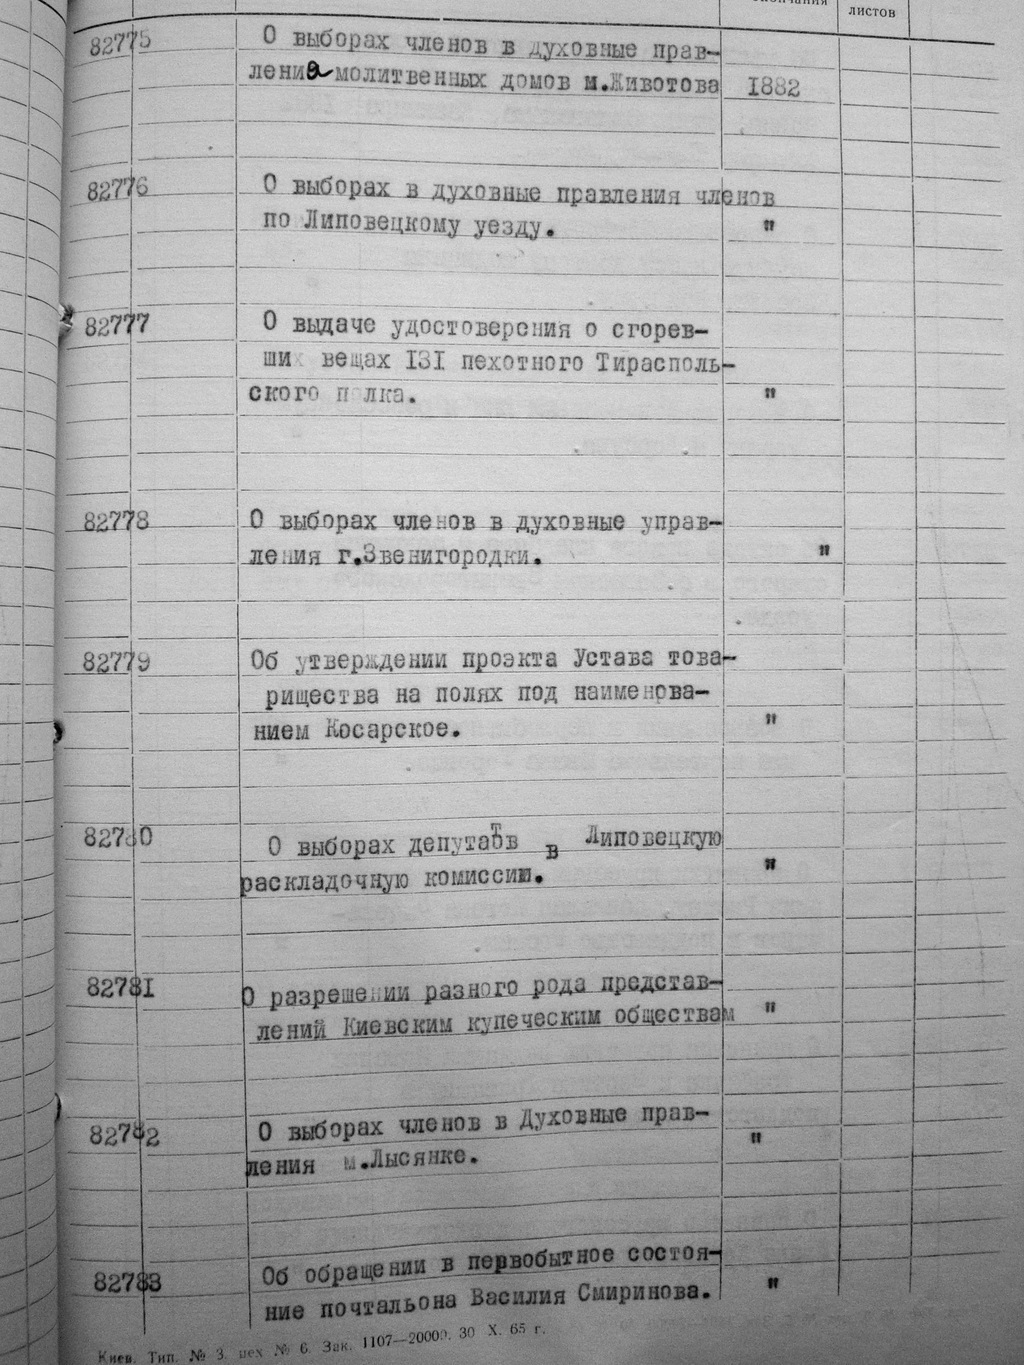 окончания
листов
82775 О выборах членов в духовные прав-
ления молитвенных домов м.Животова 1882
82776 О выборах в духовные правления членов
по Липовецкому уезду. "
82777 О выдаче удостоверения о сгорев-
ших вещах 131 пехотного Тирасполь-
ского п лка. "
82778 О выборах членов в духовные управ-
ления г.Звенигородки. "
82779 Об утверждении проэкта Устава това-
рищества на полях под наименова-
нием Косарское. "
82780 О выборах депутатов в Липовецкую
раскладочную комиссию. "
82781 О разрешении разного рода представ-
лений Киевским купеческим обществам "
82782 О выборах членов в Духовные прав-
ления м.Лысянке. "
82783 Об обращении в первобытное состоя-
ние почтальона Василия Смиринова. "
Киев. Тип. № 3. цех № 6. Зак. 1107—20000. 30 X. 65 г.